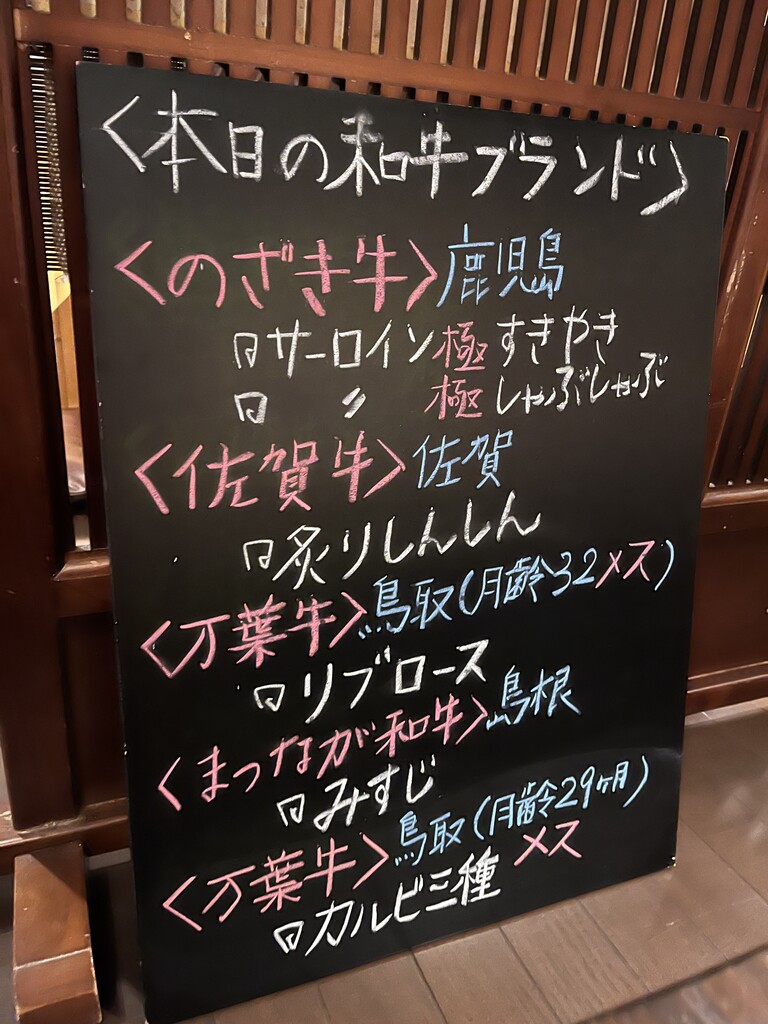 〈本日の和牛ブランド〉
〈のざき牛〉鹿児島
サーロイン極すきやき
〃 極しゃぶしゃぶ
〈佐賀牛〉佐賀
炙りしんしん
〈万葉牛〉鳥取(月齢32メス)
リブロース
〈まつなが和牛〉島根
みすじ
〈万葉牛〉鳥取(月齢29ヶ月)
メス
カルビ三種